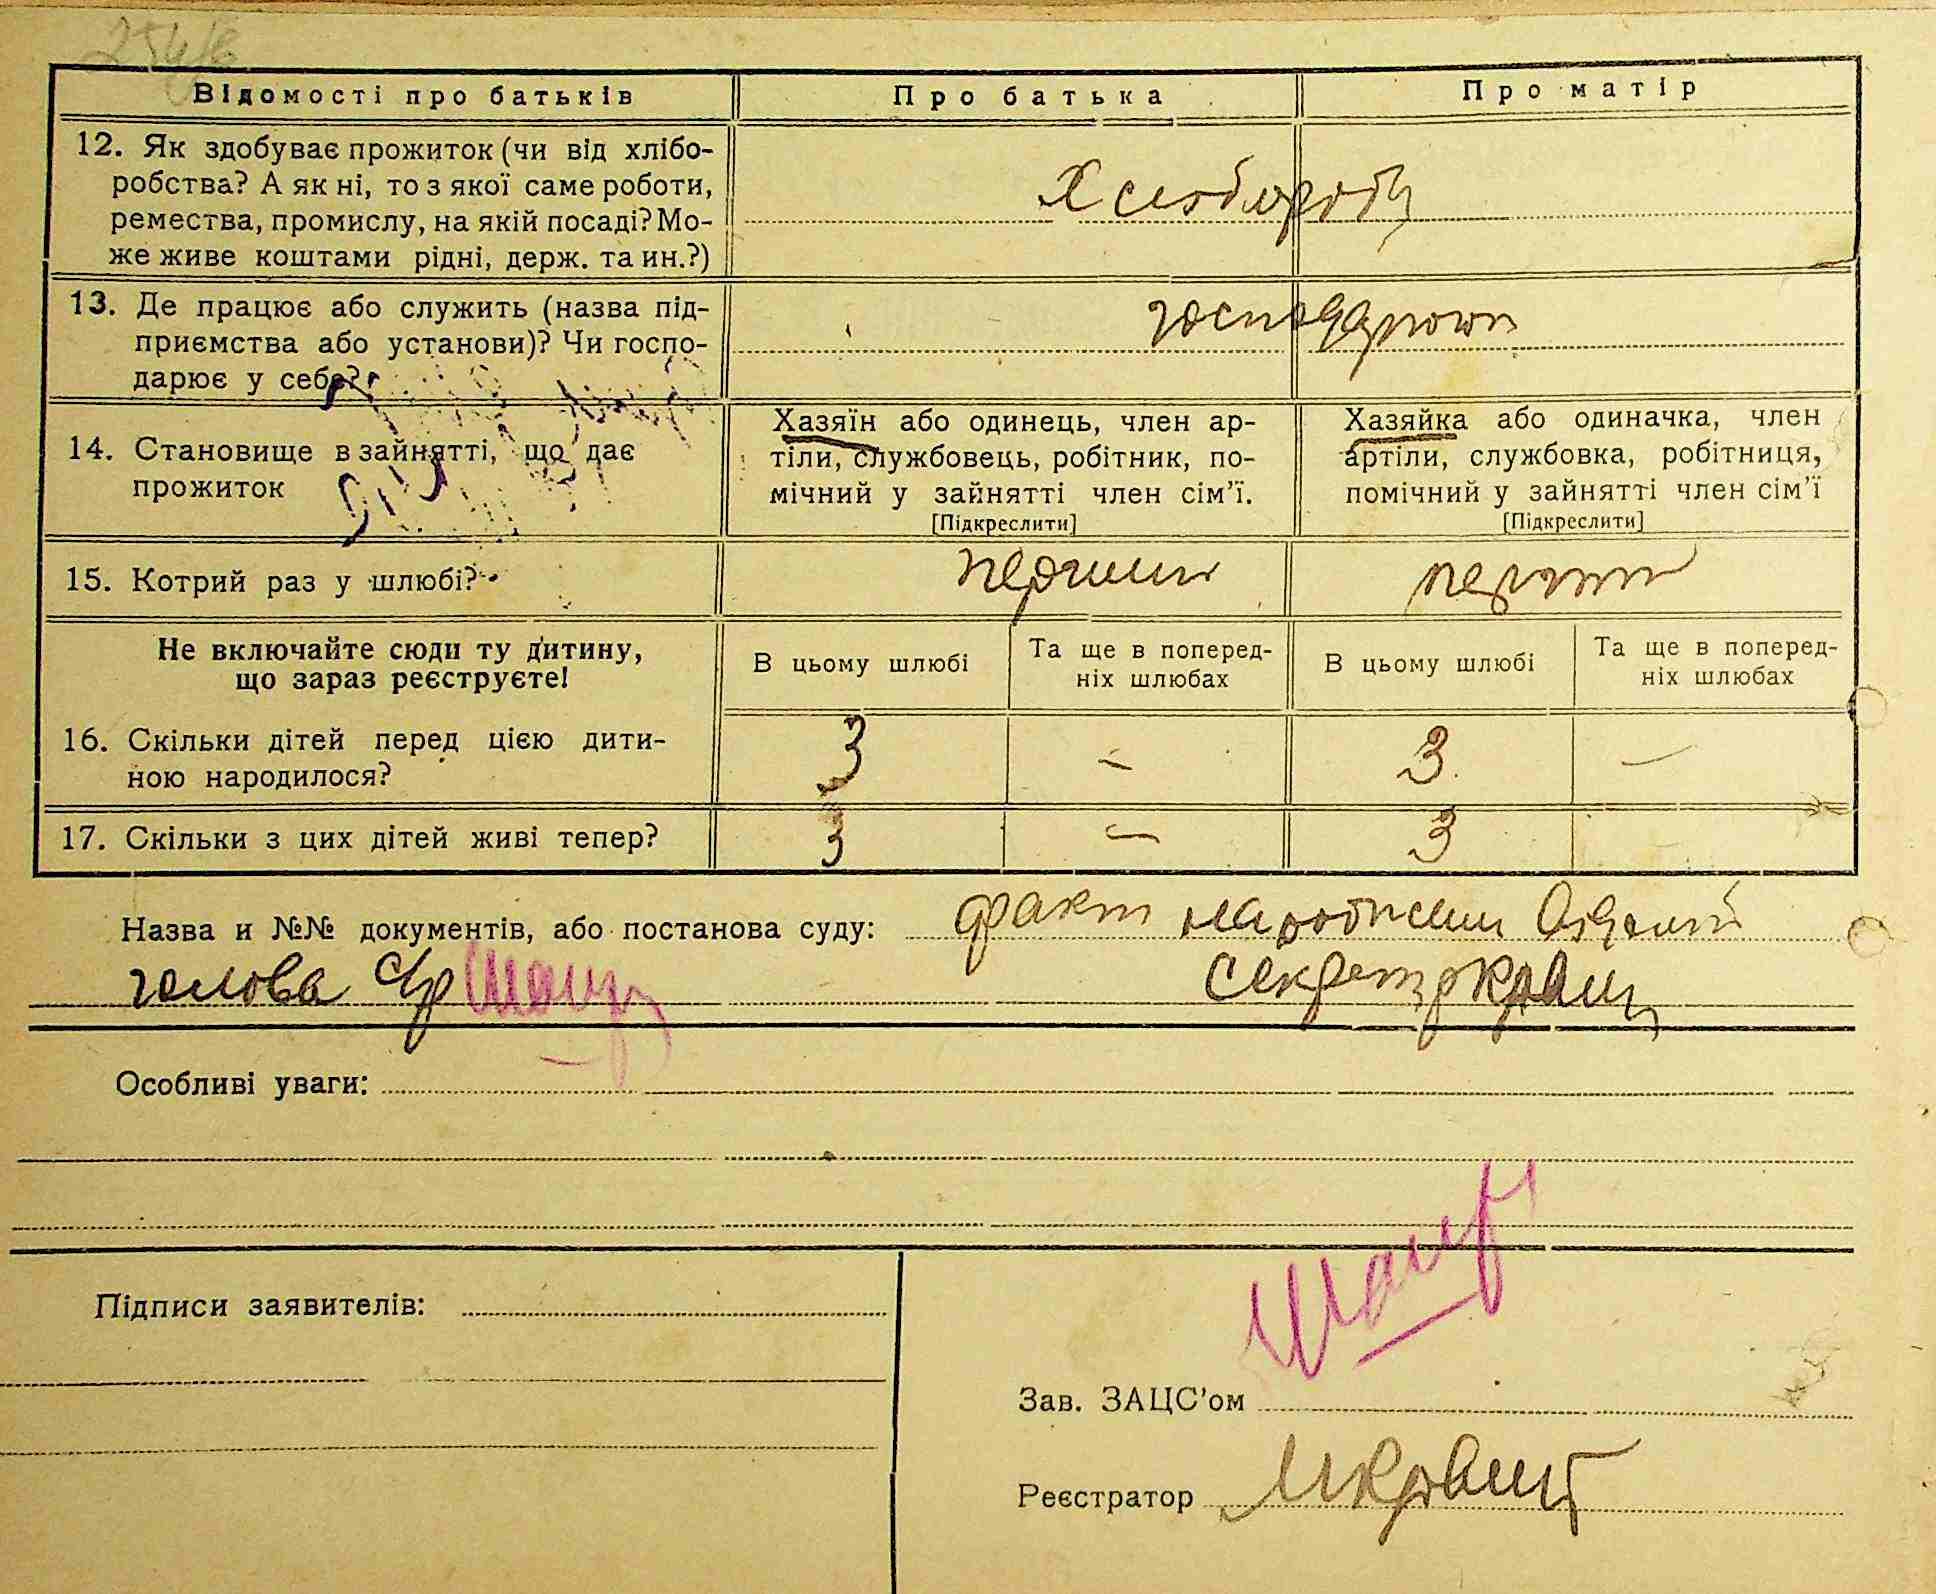 Відомості про батьків Про батька Про матір
12. Як здобуває прожиток (чи від хлібо-
робства? А як ні, то з якої саме роботи,
ремества, промислу, на якій посаді? Мо-
же живе коштами рідні, держ. та ин.?)
13. Де працює або служить (назва під-
приємства або установи)? Чи госпо-
дарює у себе?
14. Становище в зайнятті, що дає
прожиток
Хазяїн або одинець, член ар-
тіли, службовець, робітник, по-
мічний у зайнятті член сім'ї.
[Підкреслити]
Хазяйка або одиначка, член
артіли, службовка, робітниця,
помічний у зайнятті член сім'ї
[Підкреслити]
15. Котрий раз у шлюбі?
Не включайте сюди ту дитину,
що зараз реєструєте!
В цьому шлюбі
Та ще в поперед-
ніх шлюбах
В цьому шлюбі
Та ще в поперед-
ніх шлюбах
16. Скільки дітей перед цією дити-
ною народилося?
3 – 3 –
17. Скільки з цих дітей живі тепер? 3 – 3
Назва и №№ документів, або постанова суду: факт
голова
Особливі уваги:
Підписи заявителів:
Зав. ЗАЦС'ом
Реєстратор